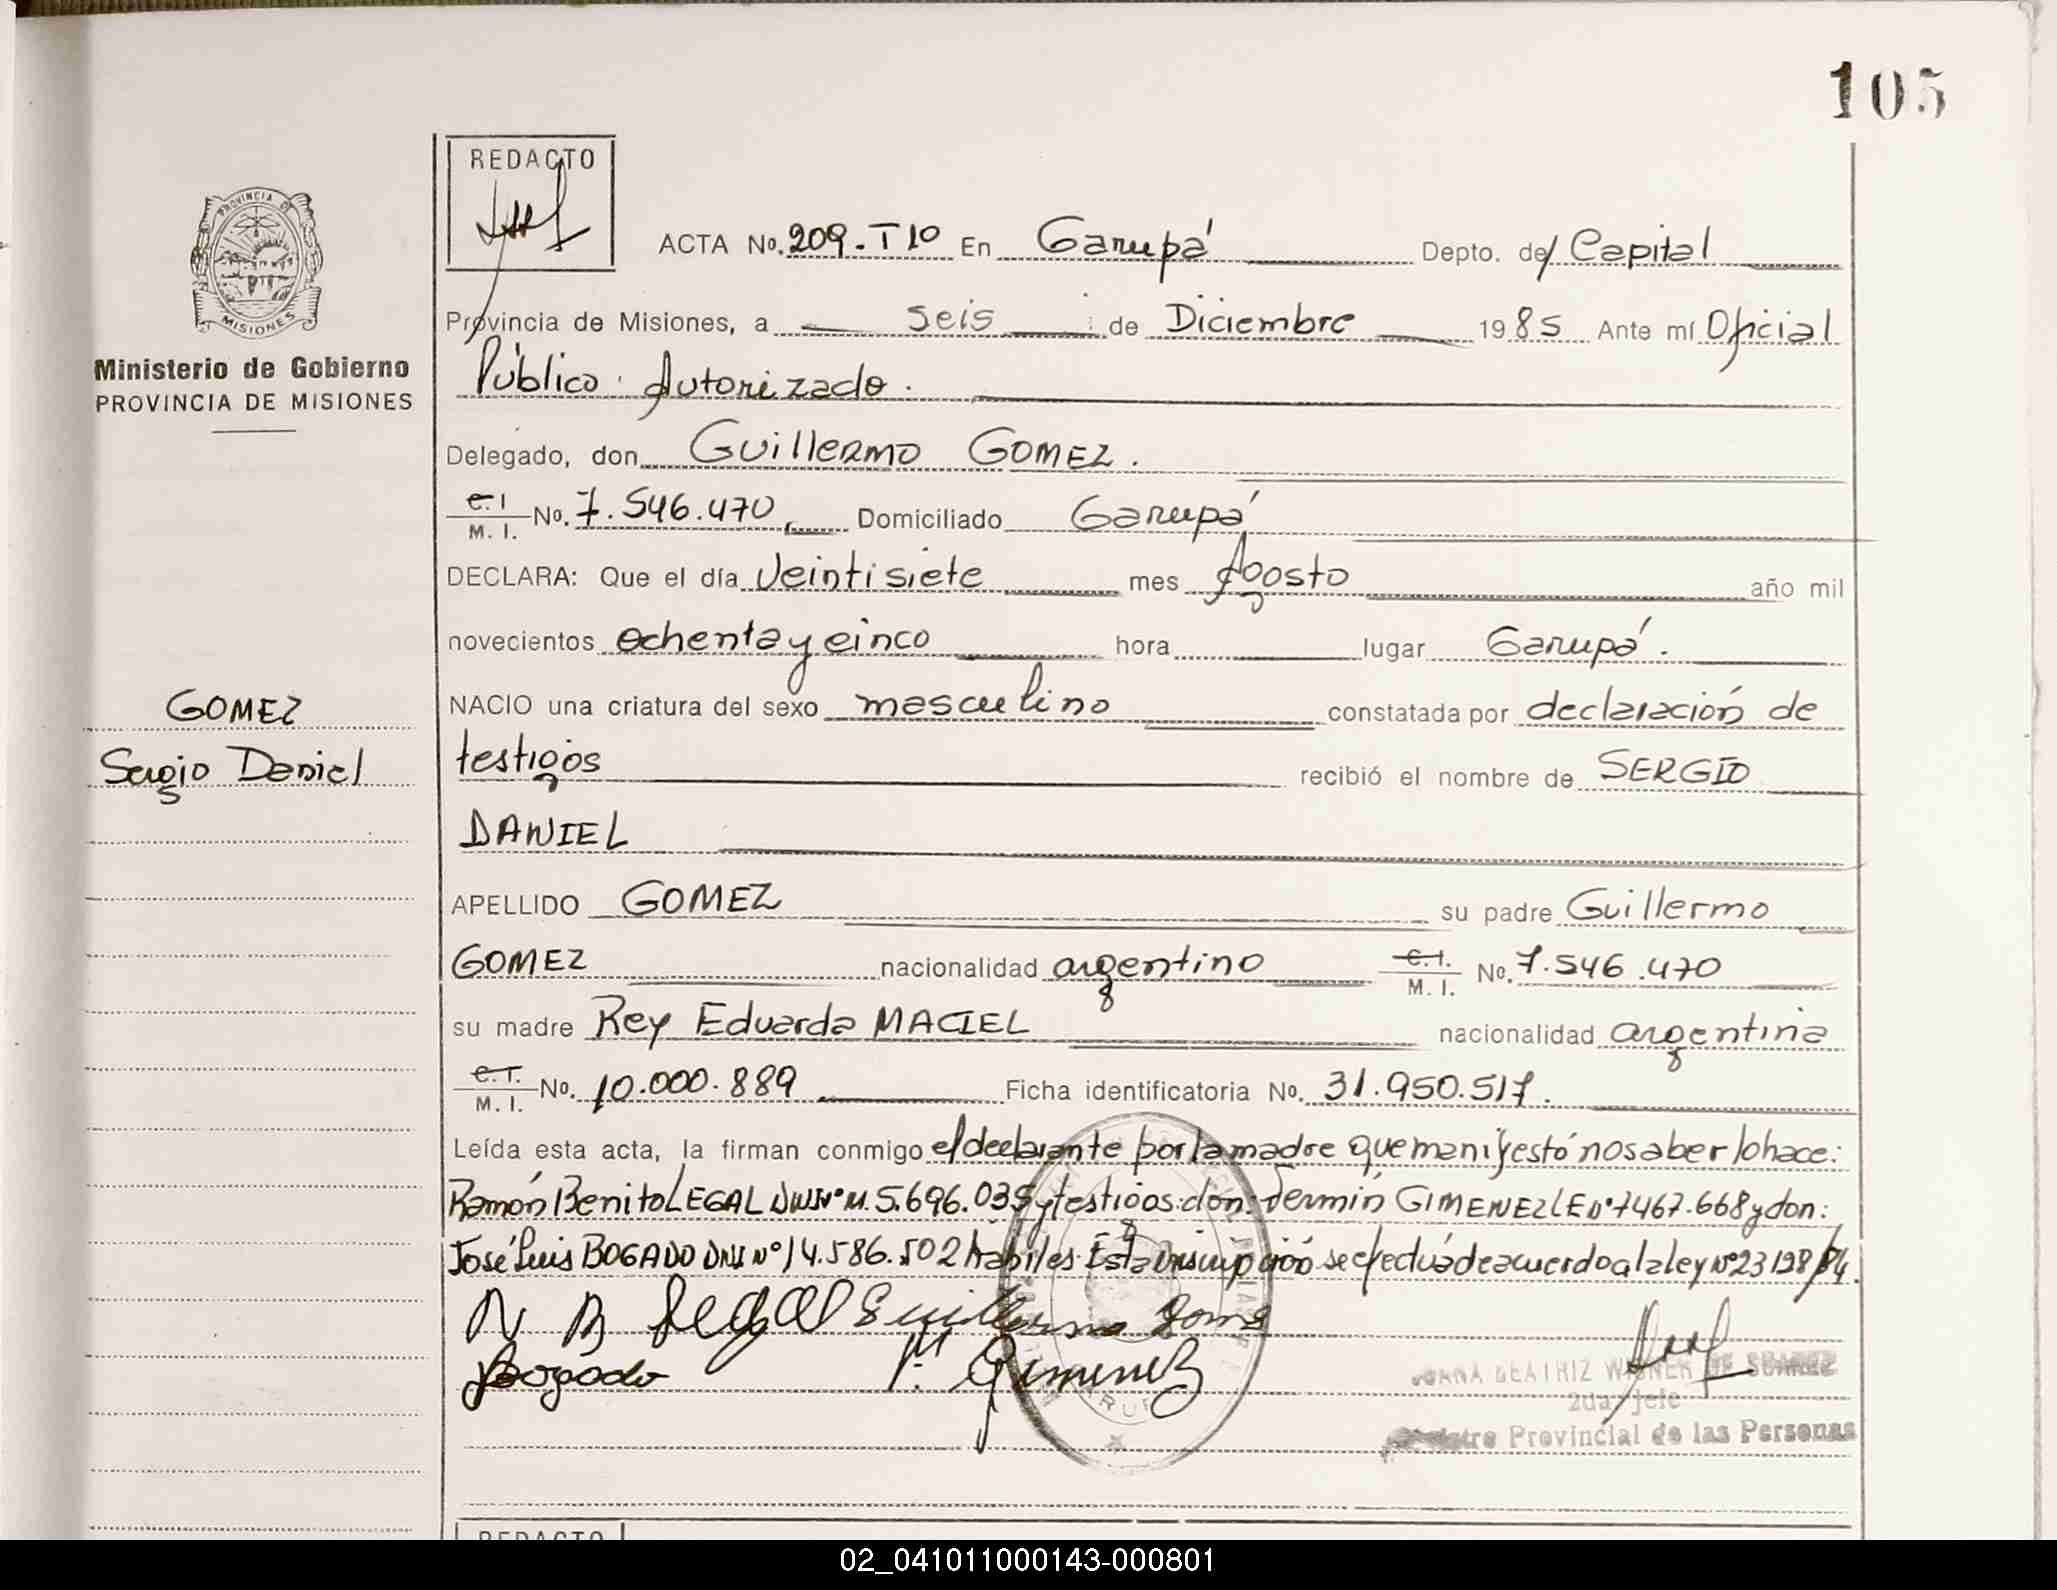 105
REDACTO
PROVINCIA DE
MISIONES
Ministerio de Gobierno
PROVINCIA DE MISIONES
ACTA No. 209.T10 En Garupá Depto. de Capital
Provincia de Misiones, a seis de Diciembre 1985 Ante mí Oficial
Público Autorizado.
Delegado, don Guillermo GOMEZ.
C.I M. I. No. 7.546.470 Domiciliado Garupá
DECLARA: Que el día Veintisiete mes Agosto año mil
novecientos ochenta y cinco hora lugar Garupá.
GOMEZ
Sergio Daniel
NACIO una criatura del sexo masculino constatada por declaración de
testigos recibió el nombre de SERGIO
DANIEL
APELLIDO GOMEZ su padre Guillermo
GOMEZ nacionalidad argentino C.I. M. I. No. 7.546.470
su madre Rey Eduarda MACIEL nacionalidad argentina
C.I. M. I. No. 10.000.889 Ficha identificatoria No. 31.950.517.
Leída esta acta, la firman conmigo el declarante por la madre que manifestó no saber lo hace:
Ramón Benito LEGAL DNI Nº M. 5.696.035 y testigos: don: Fermín GIMENEZ LE Nº 7467.668 y don:
José Luis BOGADO DNI Nº 14.586.502 hábiles. Esta inscripción se efectuá de acuerdo a la ley Nº 23198/84.
R B Legal Guillermo Gome
Bogado F. Gimenez
JUANA BEATRIZ WISNER DE
2da. Jefe
Registro Provincial de las Personas
REDACTO
02_041011000143-000801